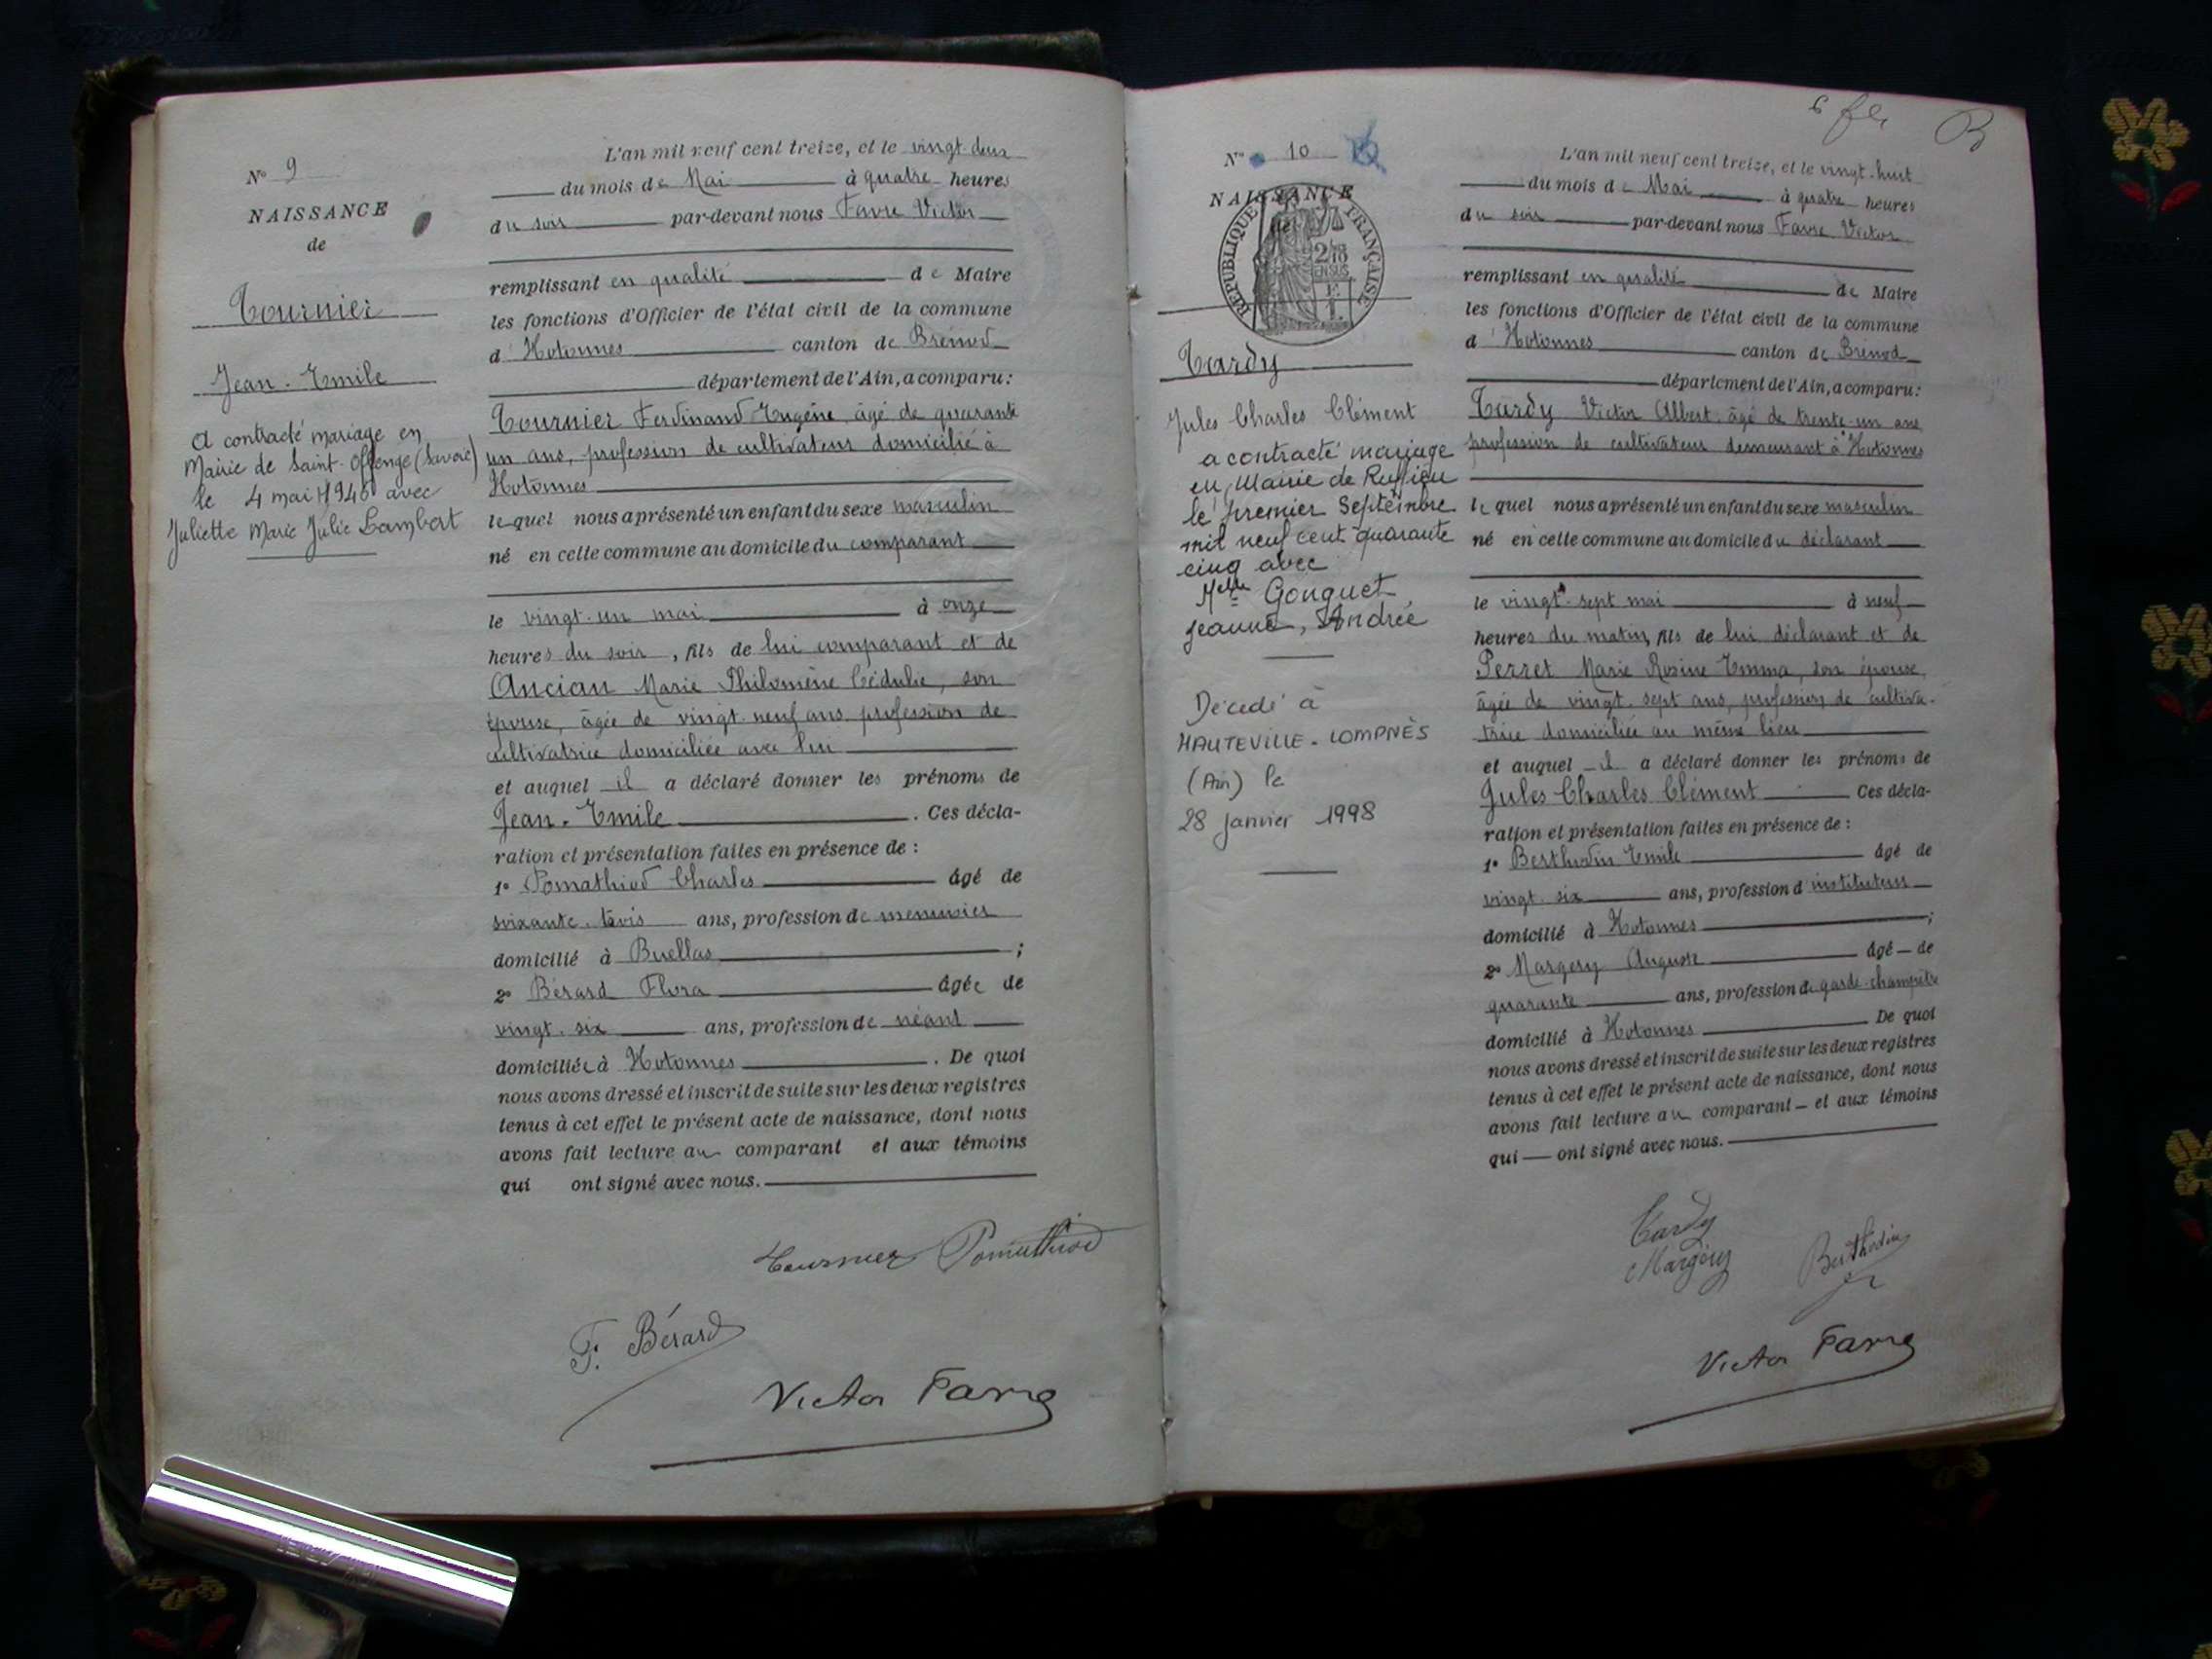 N° 9
NAISSANCE
de
Tournier
Jean-Emile
A contracté mariage en
Mairie de Saint-Offenge (Savoie)
le 4 mai 1946 avec
Juliette Marie Julie Lambert
L'an mil neuf cent treize, et le vingt deux
du mois de Mai à quatre heures
du soir par-devant nous Favre Victor
remplissant en qualité de Maire
les fonctions d'Officier de l'état civil de la commune
d'Hotonnes canton de Brénod
département de l'Ain, a comparu:
Tournier Ferdinand Eugène, âgé de quarante
un ans, profession de cultivateur domicilié à
Hotonnes
lequel nous a présenté un enfant du sexe masculin
né en celle commune au domicile du comparant
le vingt-un mai à onze
heures du soir, fils de lui comparant et de
Ancian Marie Philomène Cédulie, son
épouse, âgée de vingt-neuf ans profession de
cultivatrice domiciliée avec lui
et auquel il a déclaré donner les prénoms de
Jean-Emile. Ces décla-
ration et présentation faites en présence de :
1° Pomathiod Charles âgé de
soixante-trois ans, profession de menuisier
domicilié à Buellas ;
2° Bérard Flora âgée de
vingt-six ans, profession de néant
domiciliée à Hotonnes. De quoi
nous avons dressé et inscrit de suite sur les deux registres
tenus à cet effet le présent acte de naissance, dont nous
avons fait lecture au comparant et aux témoins
qui ont signé avec nous.
Tournier Pomathiod
F. Bérard
Victor Favre
6 B
N° 10
NAISSANCE
de
REPUBLIQUE FRANÇAISE
Tardy
Jules Charles Clément
a contracté mariage
en Mairie de Ruffieu
le premier Septembre
mil neuf cent quarante
cinq avec
Melle Gonguet
Jeanne, Andrée
Décédé à
HAUTEVILLE-LOMPNÈS
(Ain) le
28 janvier 1998
L'an mil neuf cent treize, et le vingt-huit
du mois de Mai à quatre heures
du soir par-devant nous Favre Victor
remplissant en qualité de Maire
les fonctions d'Officier de l'état civil de la commune
d'Hotonnes canton de Brénod
département de l'Ain, a comparu:
Tardy Victor Albert, âgé de trente-un ans
profession de cultivateur demeurant à Hotonnes
lequel nous a présenté un enfant du sexe masculin
né en celle commune au domicile du déclarant
le vingt-sept mai à neuf
heures du matin, fils de lui déclarant et de
Perret Marie Rosine Emma, son épouse,
âgée de vingt-sept ans, profession de cultiva-
trice domiciliée au même lieu
et auquel il a déclaré donner les prénoms de
Jules Charles Clément Ces décla-
ration et présentation faites en présence de :
1° Berthodin Emile âgé de
vingt-six ans, profession d'instituteur
domicilié à Hotonnes ;
2° Margery Auguste âgé de
quarante ans, profession de garde-champêtre
domicilié à Hotonnes De quoi
nous avons dressé et inscrit de suite sur les deux registres
tenus à cet effet le présent acte de naissance, dont nous
avons fait lecture au comparant et aux témoins
qui ont signé avec nous.
Tardy
Margery
Berthodin
Victor Favre